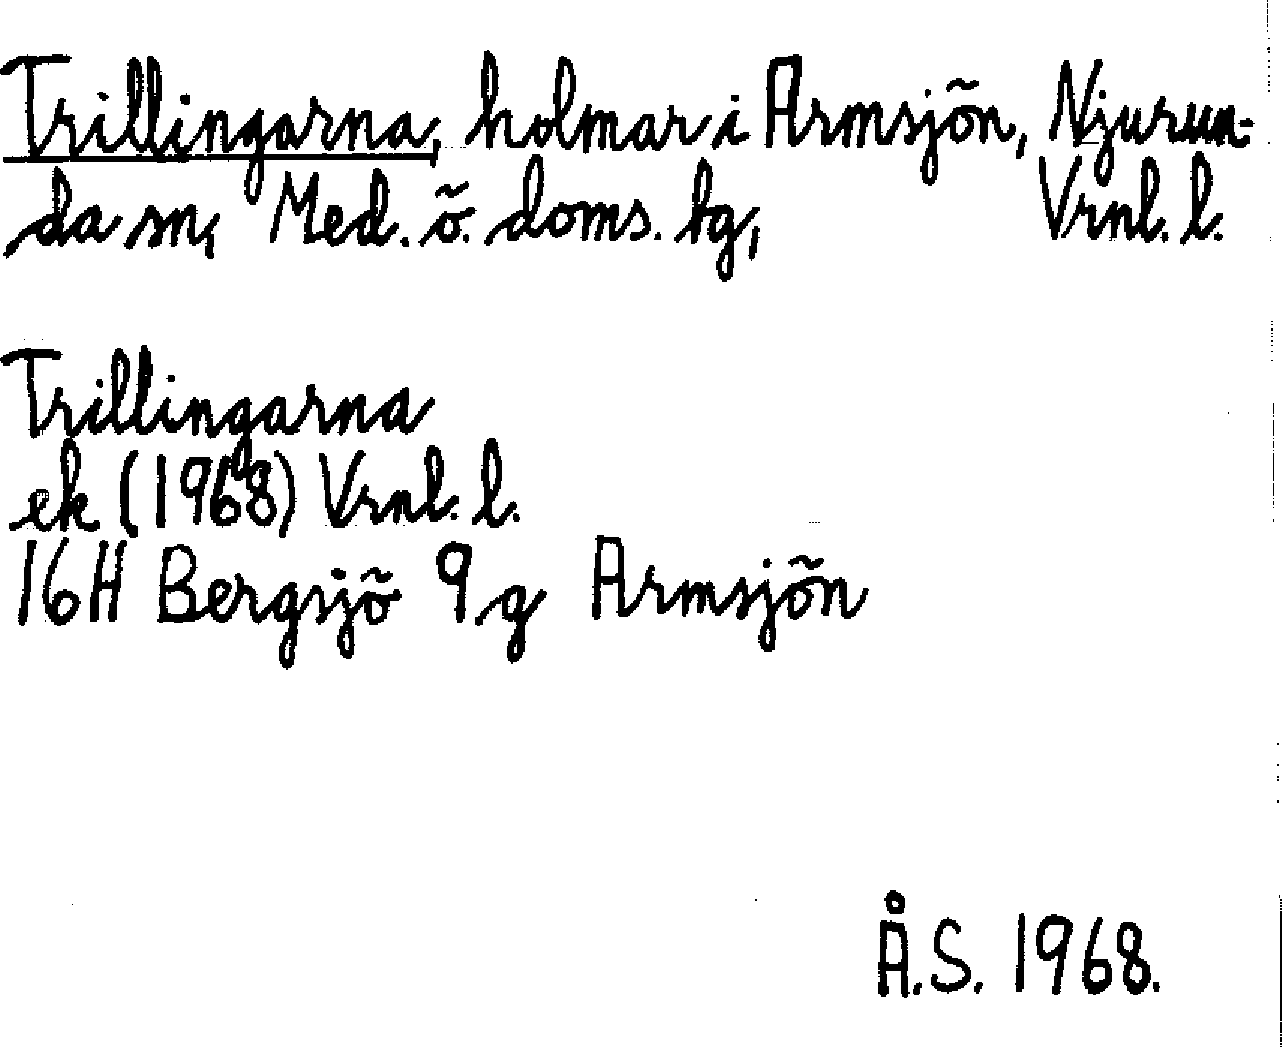 Trillingarna, holmar i Armsjön, Njurun-
da sn, Med. ö. doms. tg, Vrnl. l.
Trillingarna
ek (1968) Vrnl. l.
16H Bergsjö 9g Armsjön
Å.S. 1968.